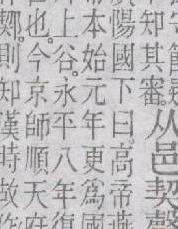 知其審。从邑契聲
陽國下曰。高帝燕
本始元年更爲國
上谷。永平八年復
也。今京師順天府
則知漢時故作